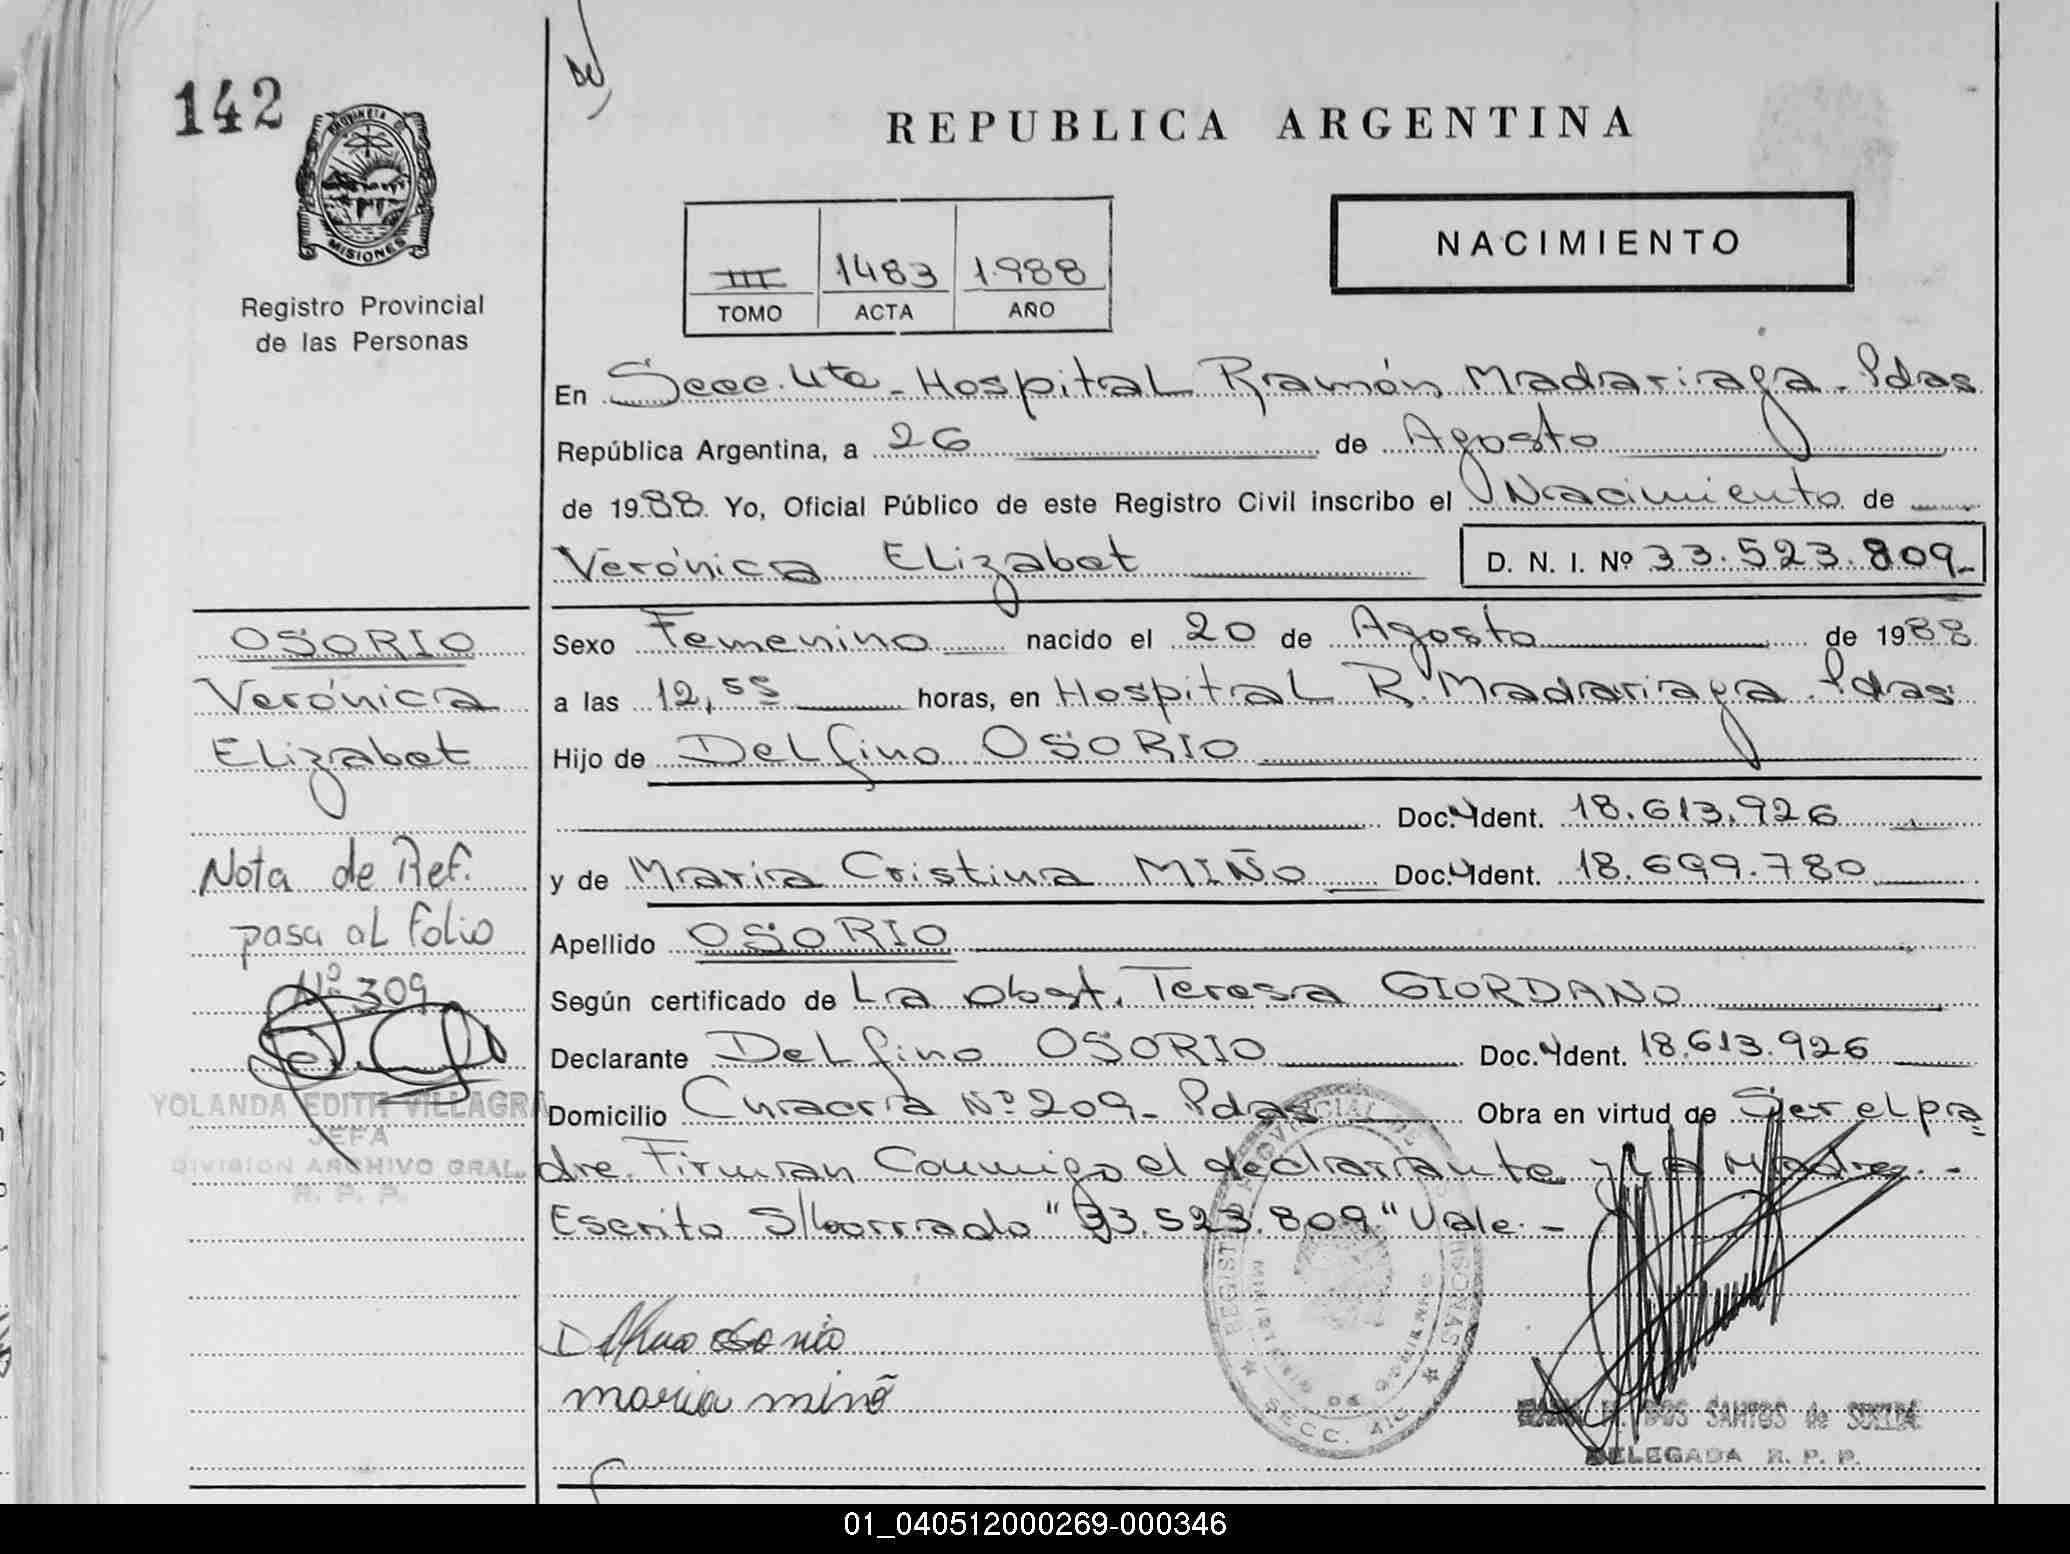 142
PROVINCIA DE
MISIONES
Registro Provincial
de las Personas
REPUBLICA ARGENTINA
III 1483 1988
TOMO ACTA AÑO
NACIMIENTO
En Secc. 4ta - Hospital Ramón Madariaga - Pdas
República Argentina, a 26 de Agosto
de 1988 Yo, Oficial Público de este Registro Civil inscribo el Nacimiento de
Verónica Elizabet D. N. I. Nº 33.523.809-
OSORIO
Verónica
Elizabet
Nota de Ref.
pasa al folio
Nº 309
YOLANDA EDITH VILLAGRA
JEFA
DIVISION ARCHIVO GRAL.
R. P. P.
Sexo Femenino nacido el 20 de Agosto de 1988
a las 12,55 horas, en Hospital R. Madariaga - Pdas
Hijo de Delfino OSORIO
Doc. Ident. 18.613.926
y de Maria Cristina MIÑO Doc. Ident. 18.699.780
Apellido OSORIO
Según certificado de La obst. Teresa GIORDANO
Declarante Delfino OSORIO Doc. Ident. 18.613.926
Domicilio Nº 209- Pdas Obra en virtud de Ser el pa
dre. Firman Conmigo el declarante y La Madre.-
Escrito S/borrado "33.523.809" Vale.-
Delfino osorio
maria miño
REGISTRO PROVINCIAL DE PERSONAS
MINISTERIO DE GOBIERNO
SECC. 4
M. DOS SANTOS de
DELEGADA R. P. P.
01_040512000269-000346